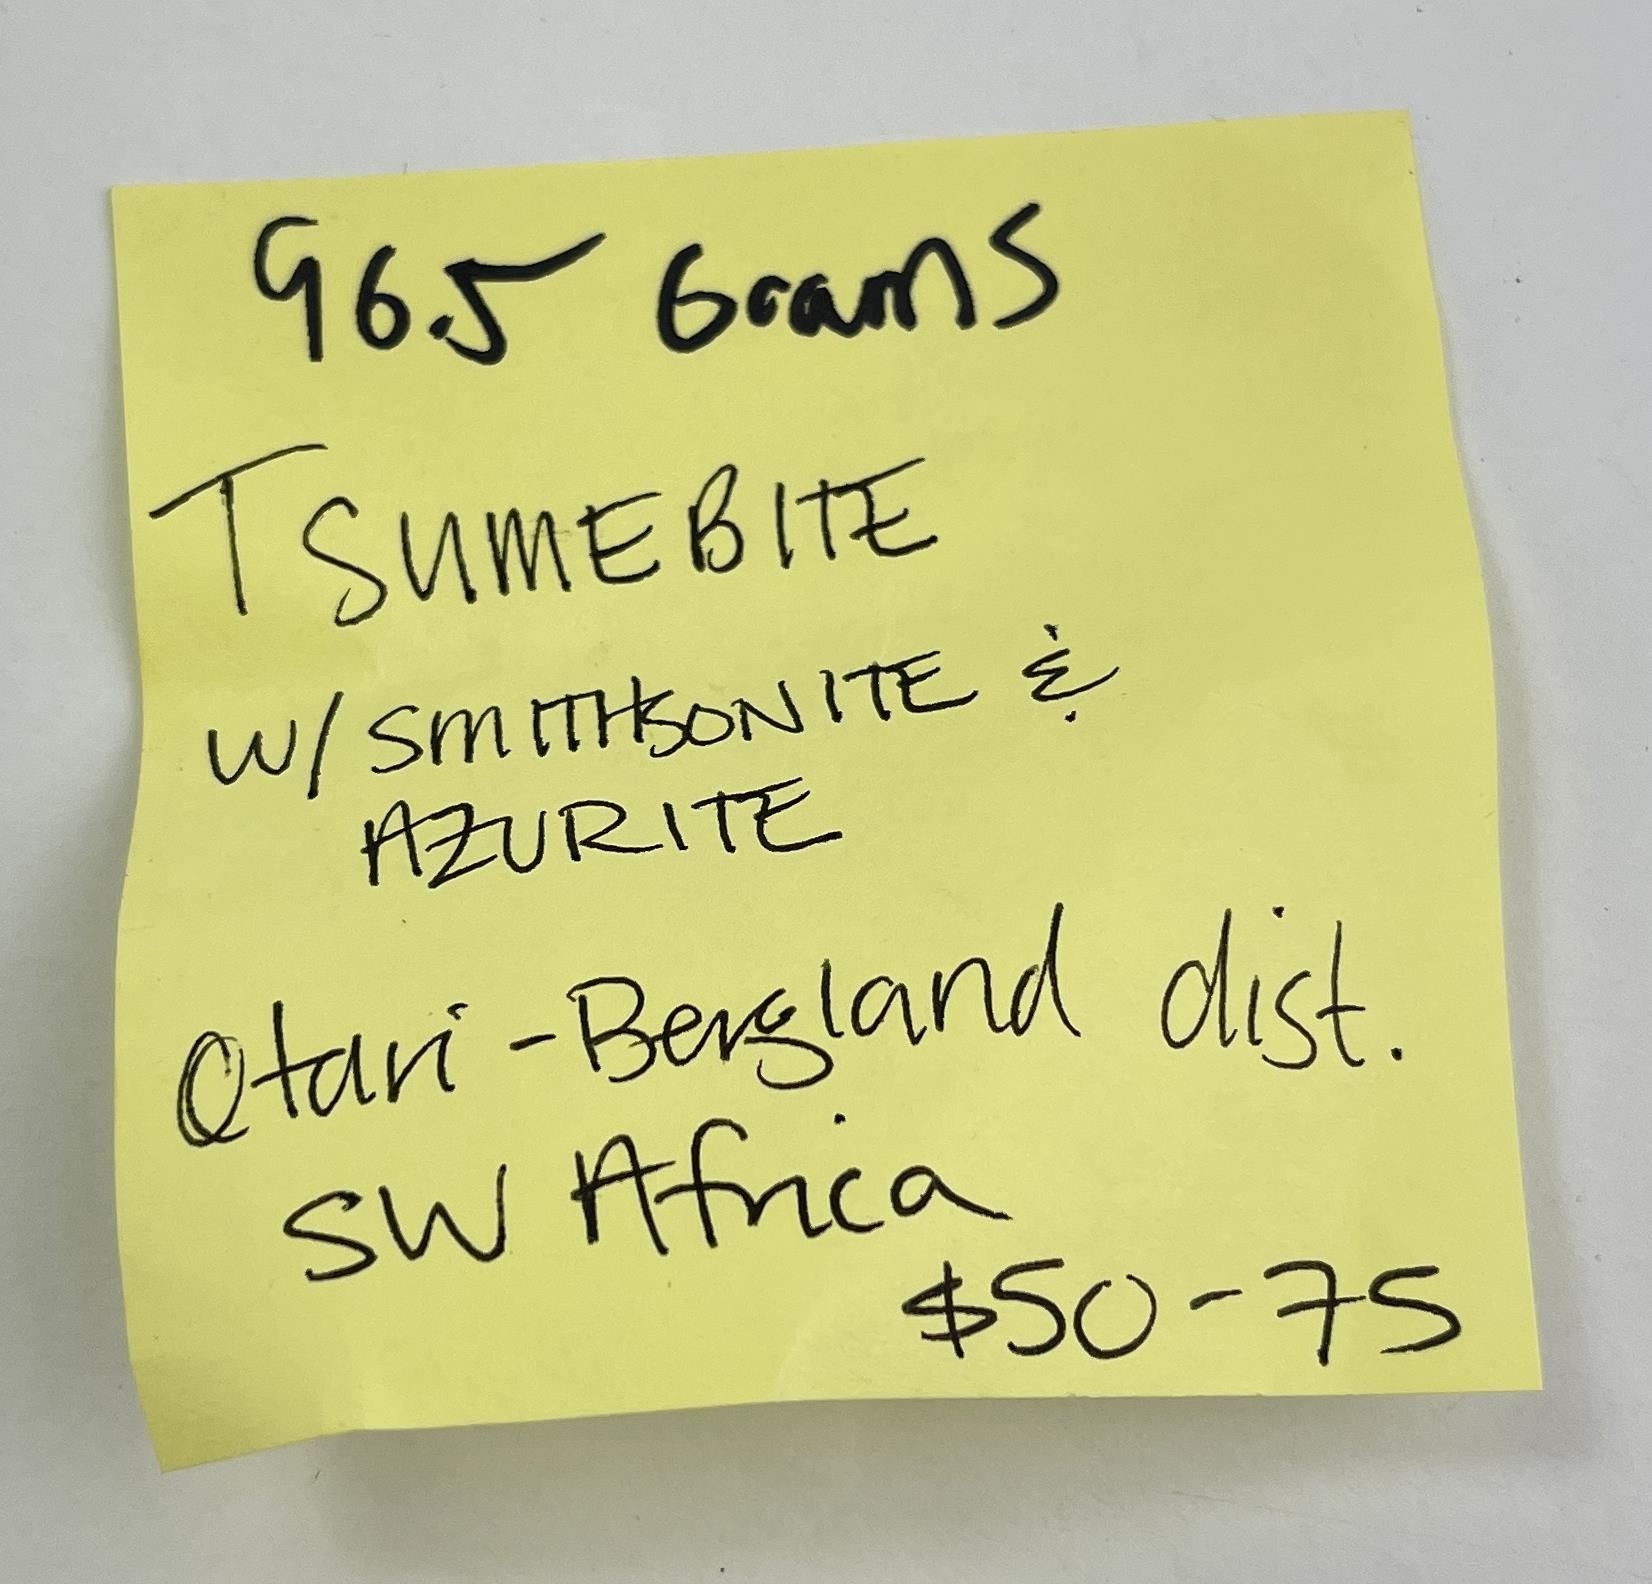 96.5 Grams
TSUMEBITE
W/ SMITHSONITE &
AZURITE
Otari-Bergland dist.
SW Africa
$50-75